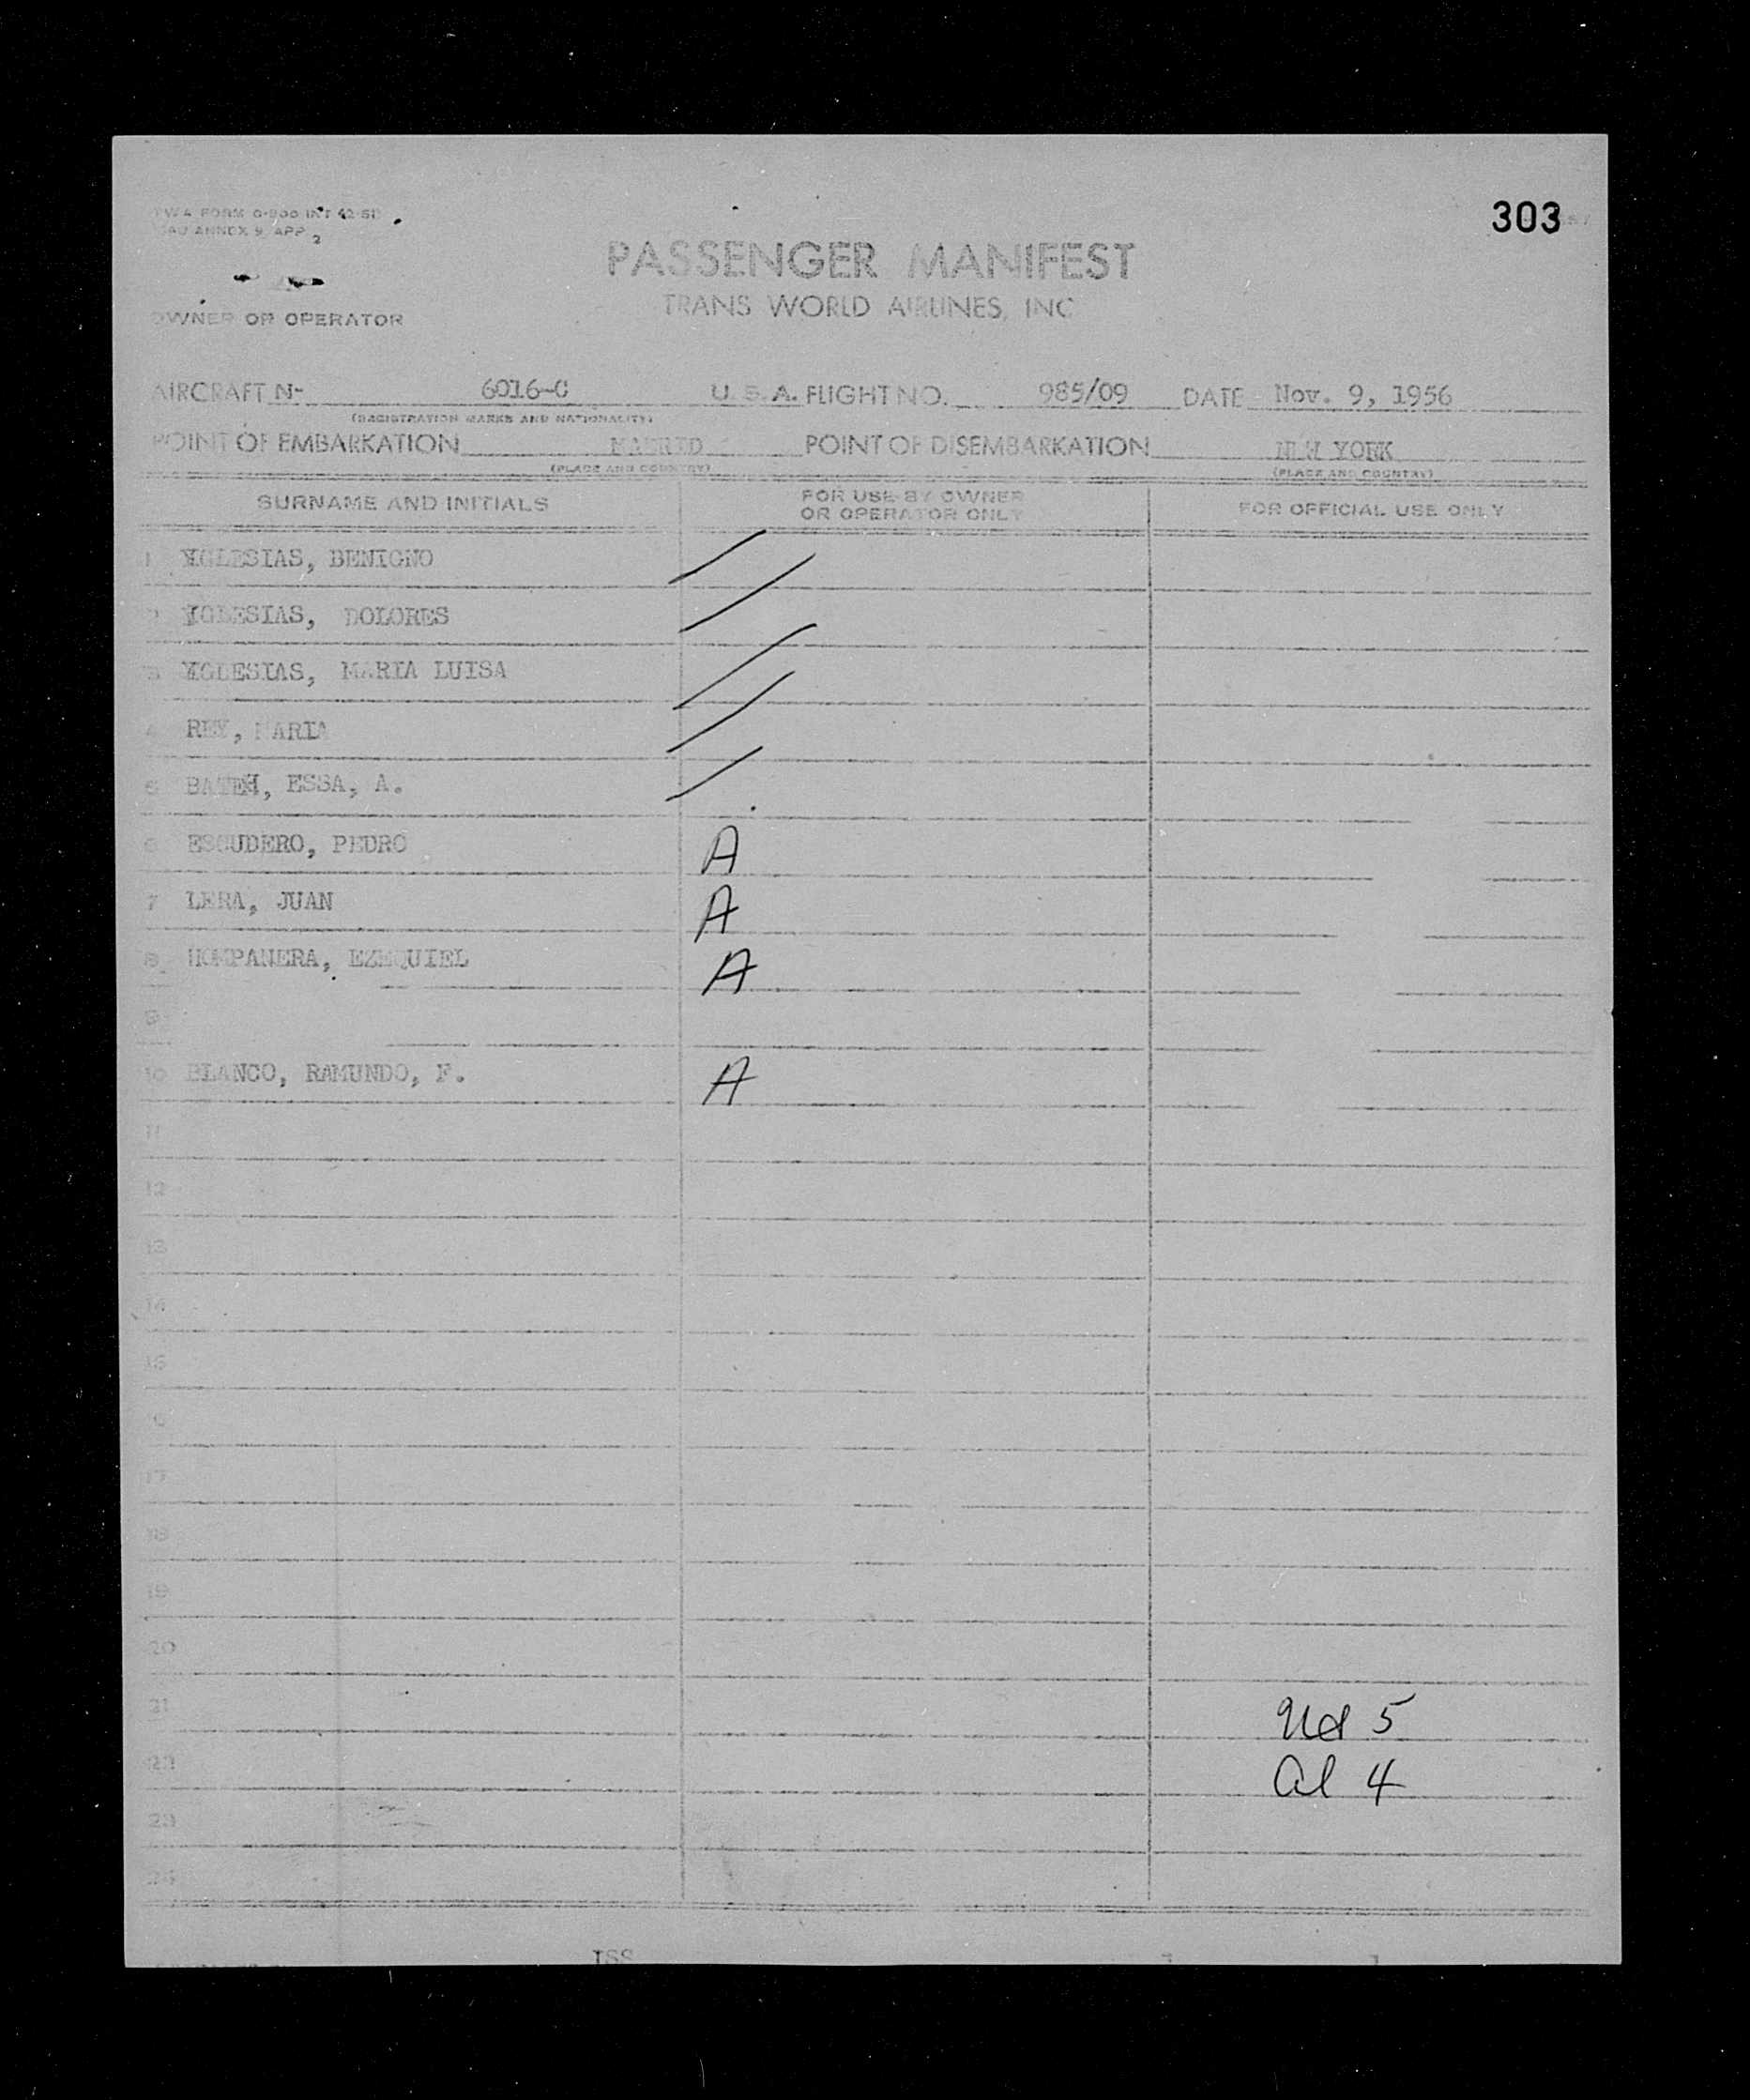 303
TWA FORM 0-800 INT 12-51
ICAO ANNEX 9, APP 2
PASSENGER MANIFEST
TRANS WORLD AIRLINES, INC
OWNER OR OPERATOR
AIRCRAFT N- 6016-C U. S. A. FLIGHT NO. 985/09 DATE Nov. 9, 1956
(REGISTRATION MARKS AND NATIONALITY)
POINT OF EMBARKATION MADRID POINT OF DISEMBARKATION NEW YORK
(PLACE AND COUNTRY) (PLACE AND COUNTRY)
SURNAME AND INITIALS FOR USE BY OWNER OR OPERATOR ONLY FOR OFFICIAL USE ONLY
1 YGLESIAS, BENIGNO
2 YGLESIAS, DOLORES
3 YGLESIAS, MARIA LUISA
4 REY, MARIA
5 BATEH, ESSA, A.
6 ESCUDERO, PEDRO A
7 LERA, JUAN A
8 HOMPANERA, EZEQUIEL A
9
10 BLANCO, RAMUNDO, F. A
11
12
13
14
15
16
17
18
19
20
21 Usa 5
22 al 4
23
24